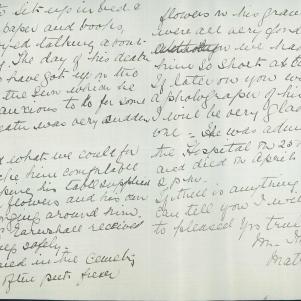 to sit up in bed &
paper and books,
talking about
The day of his death
have got up in the
the Sun which he
anxious to to for some
death was very sudden
what we could for
make him comfortable
his table supplied
flowers and his own
around him.
received
safely.
in the cemetery
of the
flowers on his grave
were all very fond
we had
him so short a time
If later on you w
a photograper of his
I will be very glad
one - He was adm
the Hospital on 25
and died on April
2 p.m.
If there is anything
can tell you I will
to pleased yrs true
M.
Matr